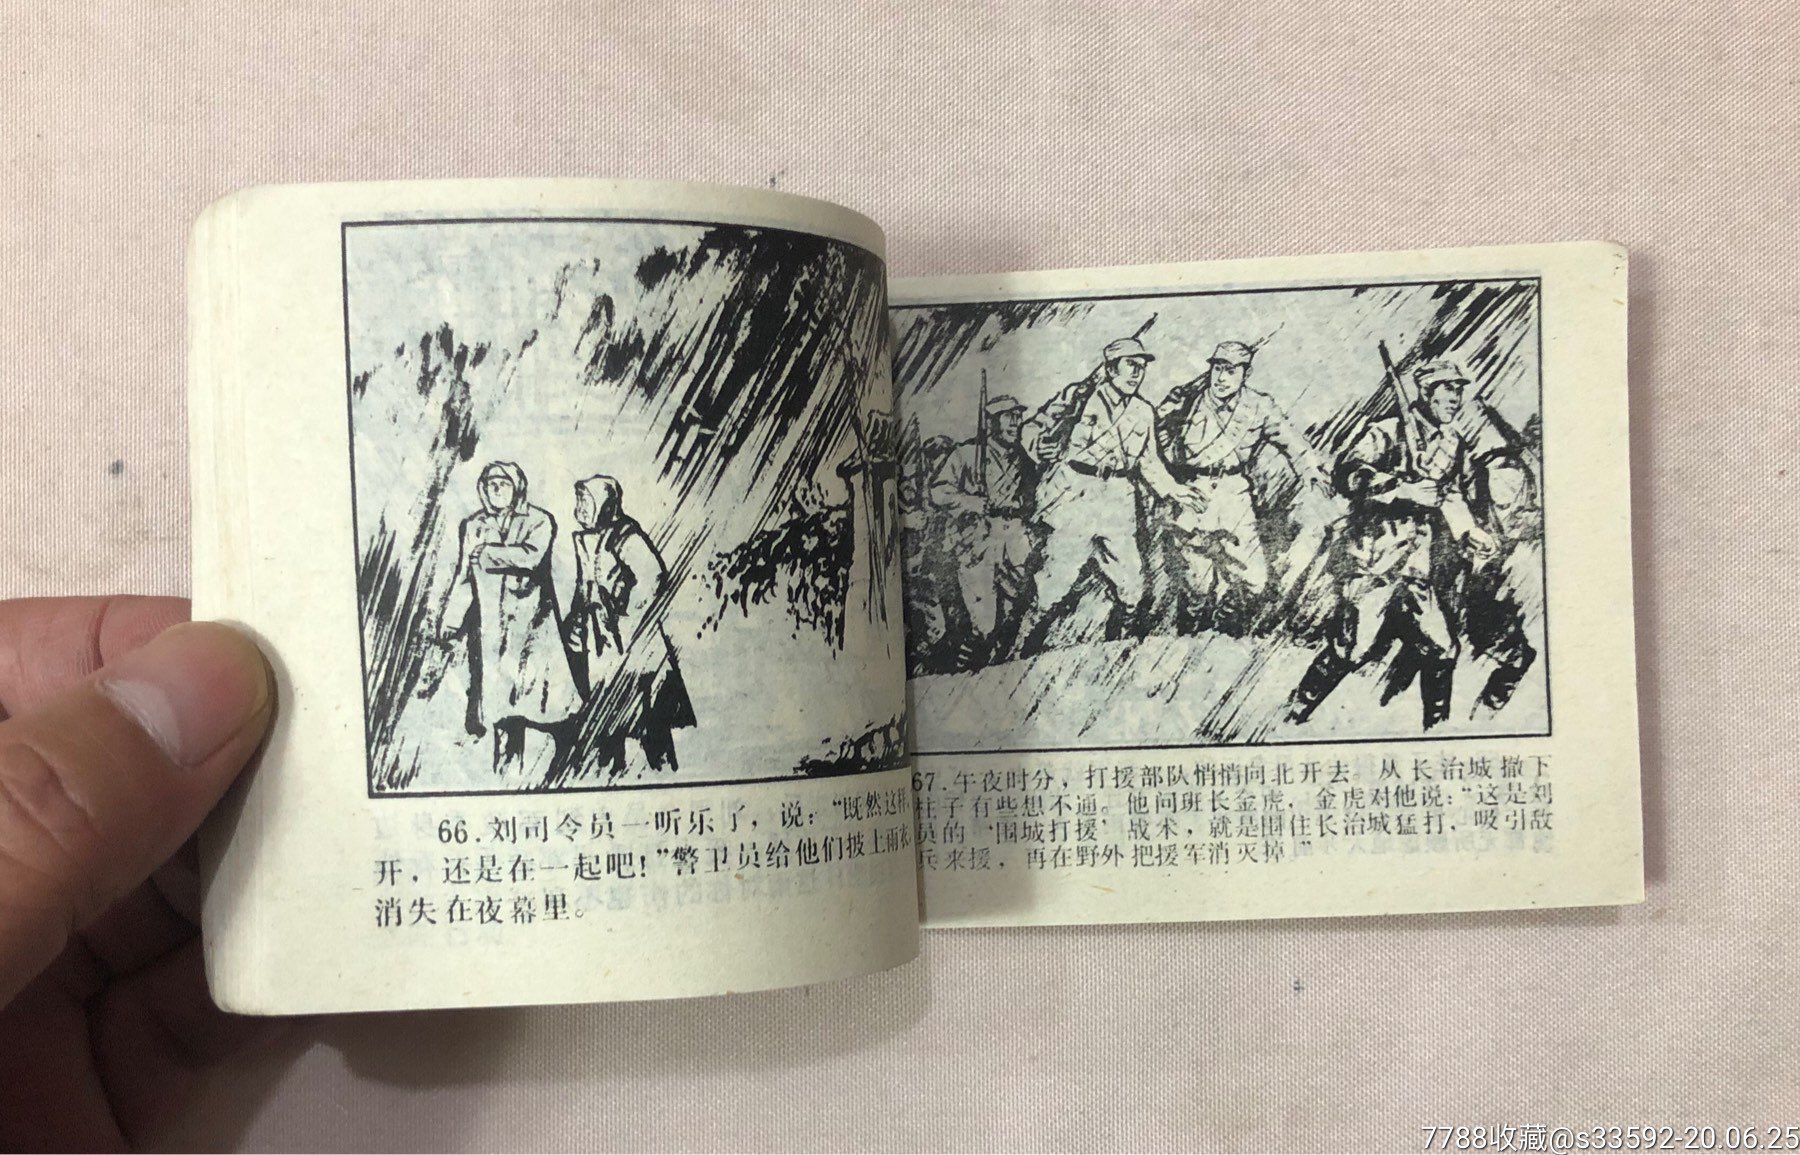 66.刘司令员一听乐了，说：“既然这样
开，还是在一起吧！”警卫员给他们披上雨衣
消失在夜幕里。
67.午夜时分，打援部队悄悄向北开去。从长治城撤下
柱子有些想不通。他问班长金虎，金虎对他说：“这是刘
员的‘围城打援’战术，就是围住长治城猛打，吸引敌
兵来援，再在野外把援军消灭掉”
7788收藏@s33592-20.06.25